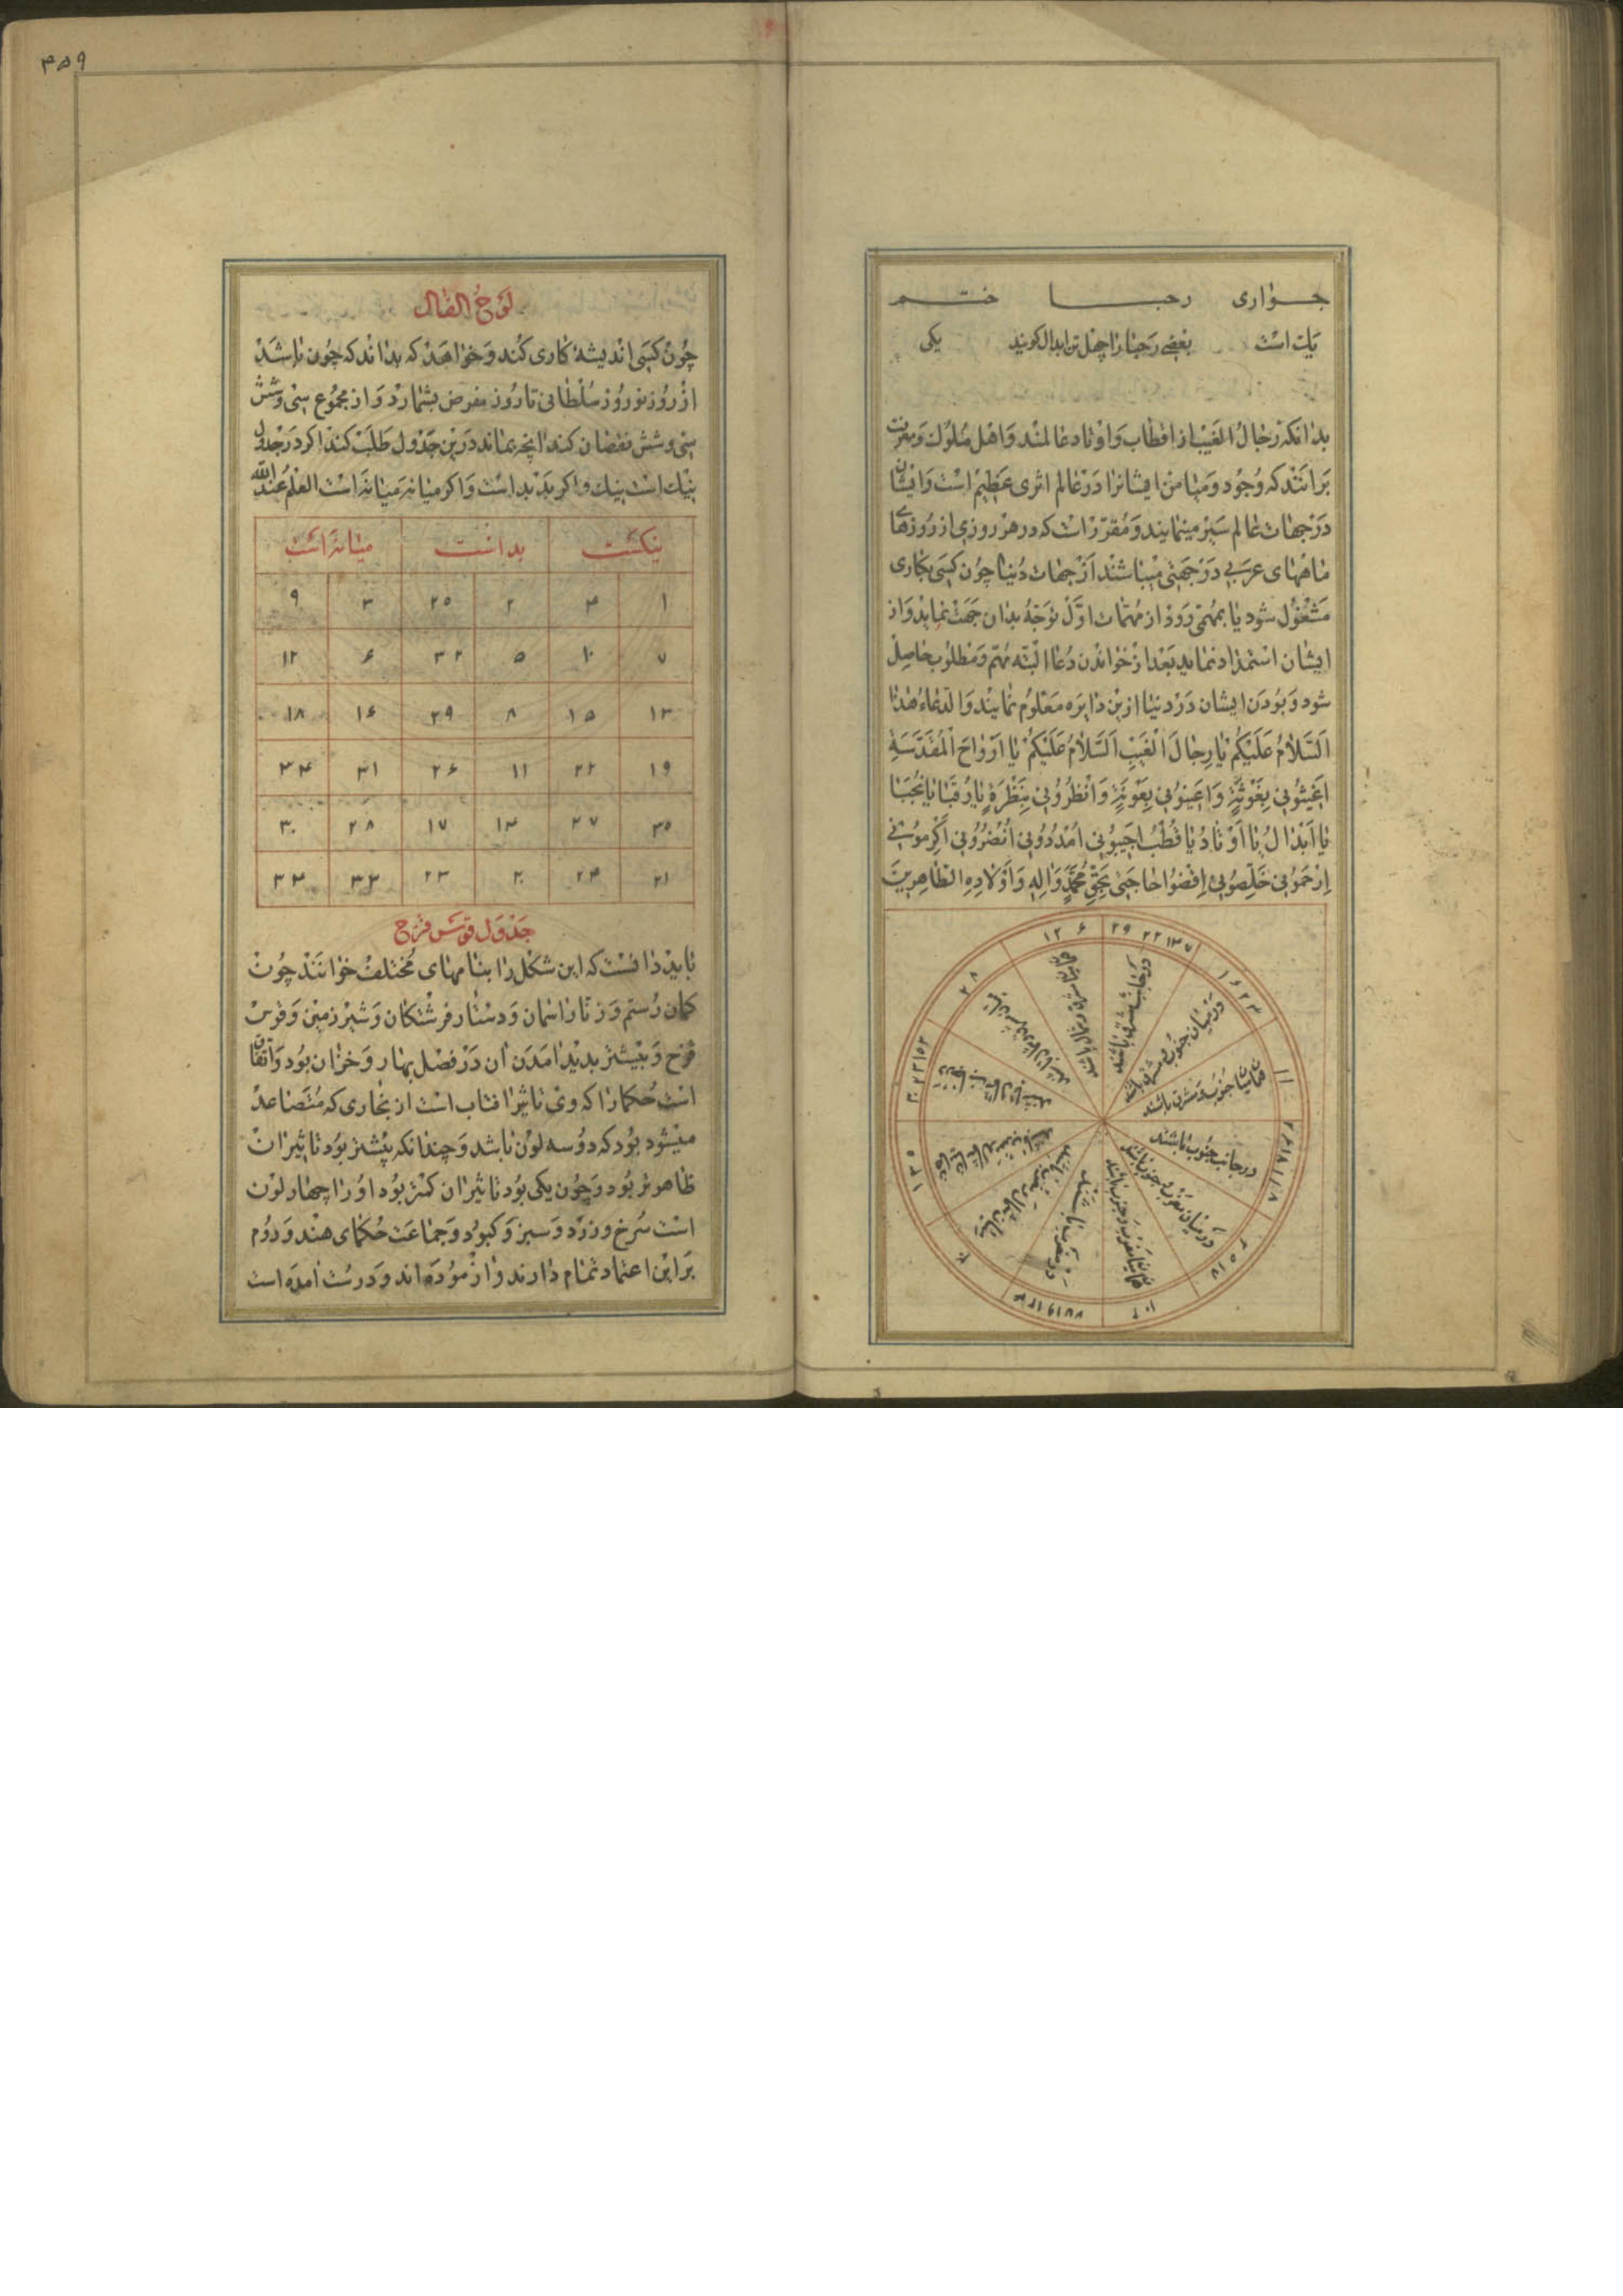 جواری رجبا ختم
یک است بعضی رجبا را چهل تن ابدال کویند یکی
بدانکه رجال الغیب از اقطاب و اوتاد عالمند و اهل سلوک و معرفت
برانند که وجود و میامن ایشانرا در عالم اثری عظیم است و ایشان
در جهات عالم سیر مینمایند و مقرر است که در هر روزی از روزهای
ماههای عربی در جهتی میباشند از جهات دنیا چون کسی بکاری
مشغول شود یا بمهمی رود از مهمات اول توجه بدان جهت نماید و از
ایشان استمداد نماید بعد از خواندن دعا البته مهم و مطلوب حاصل
شود و بودن ایشان در دنیا ازین دایره معلوم نمایند والدعاء هذا
السلام علیکم یا رجال الغیب السلام علیکم یا ارواح المقدسة
اغیثونی بغوثة و اعینونی بعونة و انظرونی بنظرة یا رقبا یا نجبا
یا ابدال یا اوتاد یا قطب اجیبونی امددونی انصرونی اکرمونی
ارحمونی خلصونی اقضوا حاجتی بحق محمد و اله و اولاده الطاهرین
۶ ۱۲
۲۹ ۲۲ ۱۴ ۷
در جانب مشرق باشند
در میان جنوب و مشرق باشند
میان جنوب و مشرق باشند
در جانب جنوب باشند
در میان مغرب و جنوب باشند
میان مغرب و جنوب باشند
در مغرب باشند
۲۸
۴۵۹
لوح الفال
چون کسی اندیشه کاری کند و خواهد که بداند که چون باشد
از روز نوروز سلطانی تا روز مفرض بشمارد و از مجموع سی و شش
سی و شش نقصان کند انچه بماند درین جدول طلب کند اکر در جدول
نیک است نیک و اکر بد بد است و اکر میانه میانه است العلم عند الله
نیکست بد است میانه است
۱ ۴ ۲ ۲۵ ۳ ۹
۷ ۱۰ ۵ ۳۲ ۶ ۱۲
۱۳ ۱۵ ۸ ۲۹ ۱۶ ۱۸
۱۹ ۲۲ ۱۱ ۲۶ ۳۱ ۳۴
۳۵ ۲۷ ۱۴ ۱۷ ۲۸ ۳۰
۲۱ ۲۴ ۲۰ ۲۳ ۳۲ ۳۳
جدول قوس قزح
باید دانست که این شکل را بنامهای مختلف خوانند چون
کمان رستم و زنار اسمان و دستار فرشتکان و شیر زمین و قوس
قزح و بیشتر بدید امدن ان در فصل بهار و خزان بود و اتفاق
است حکما را که وی تاثیر افتاب است از بخاری که متصاعد
میشود بود که دو سه لون باشد و چندانکه بیشتر بود تاثیر ان
ظاهرتر بود و چون یکی بود تاثیر ان کمتر بود او را چهار لون
است سرخ و زرد و سبز و کبود و جماعت حکمای هند و روم
بر این اعتماد تمام دارند و ازموده اند و درست امده است